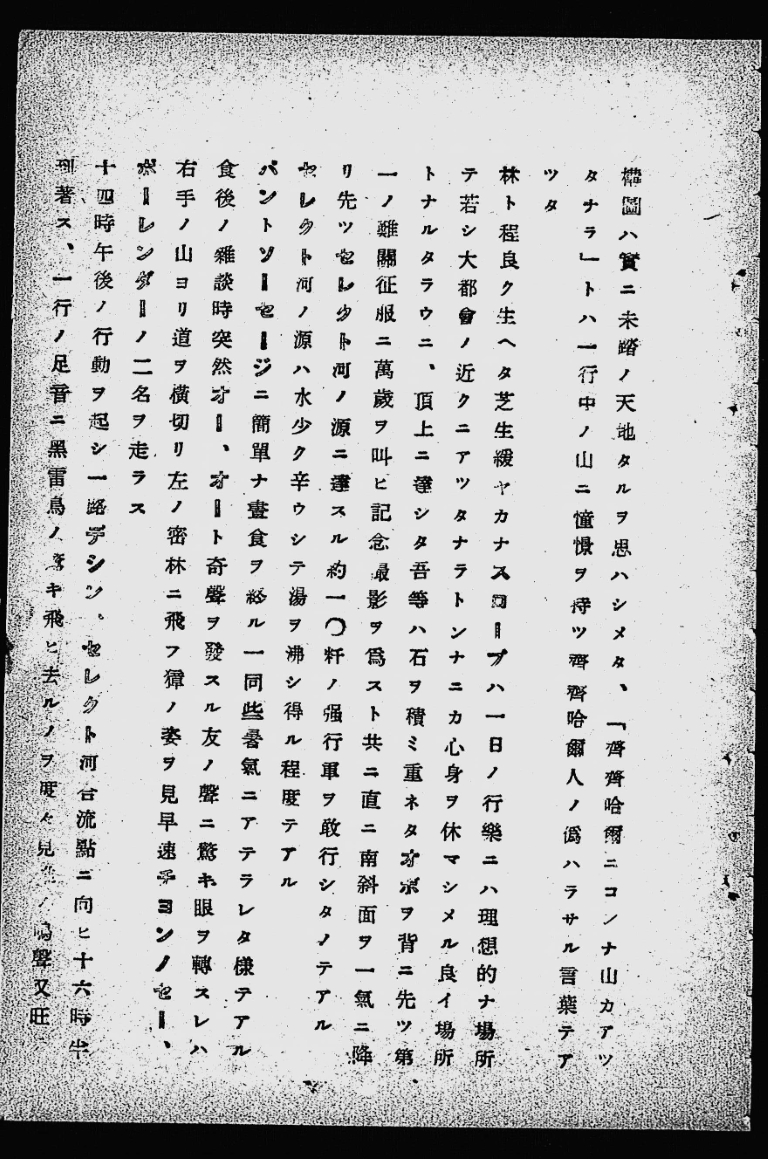 構圖ハ實ニ未踏ノ天地タルヲ思ハシメタ、「齊齊哈爾ニコンナ山カアツ
タナラ」トハ一行中ノ山ニ憧憬ヲ持ツ齊齊哈爾人ノ僞ハラサル言葉テア
ツタ
林ト程良ク生ヘタ芝生緩ヤカナスロープハ一日ノ行樂ニハ理想的ナ場所
テ若シ大都會ノ近クニアツタナラトンナニカ心身ヲ休マシメル良イ場所
トナルタラウニ、頂上ニ達シタ吾等ハ石ヲ積ミ重ネタオボヲ背ニ先ツ第
一ノ難關征服ニ萬歲ヲ叫ヒ記念最影ヲ爲スト共ニ直ニ南斜面ヲ一氣ニ降
リ先ツセレクト河ノ源ニ達スル約一〇粁ノ强行軍ヲ敢行シタノテアル
セレクト河ノ源ハ水少ク辛ウシテ湯ヲ沸シ得ル程度テアル
パントソーセージニ簡單ナ晝食ヲ終ル一同些暑氣ニアテラレタ様テアル
食後ノ雜談時突然オー、オート奇聲ヲ發スル友ノ聲ニ驚キ眼ヲ轉スレハ
右手ノ山ヨリ道ヲ橫切リ左ノ密林ニ飛フ獐ノ姿ヲ見早速チヨンノセー、
ボーレンダーノ二名ヲ走ラス
十四時午後ノ行動ヲ起シ一路デシン、セレクト河合流點ニ向ヒ十六時半
到著ス、一行ノ足音ニ黑雷鳥ノ驚キ飛ヒ去ルノヲ度々見 鳴聲又旺